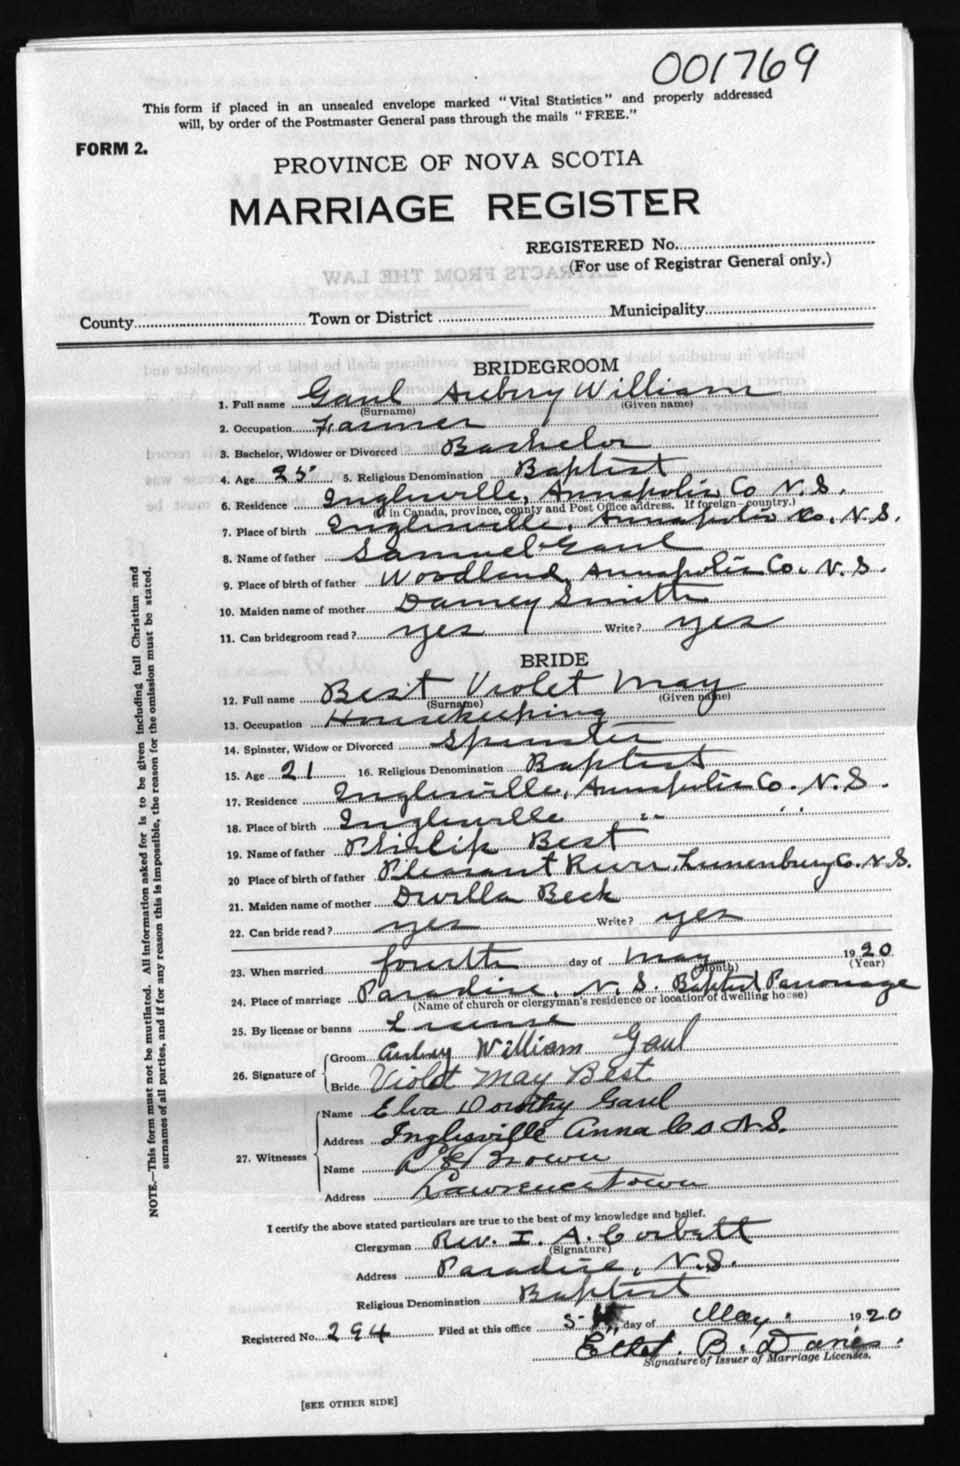 001769
This form if placed in an unsealed envelope marked "Vital Statistics" and properly addressed
will, by order of the Postmaster General pass through the mails "FREE."
FORM 2.
PROVINCE OF NOVA SCOTIA
MARRIAGE REGISTER
REGISTERED No.
(For use of Registrar General only.)
EXTRACTS FROM THE LAW
County Town or District Municipality
BRIDEGROOM
1. Full name Gaul Aubery William
(Surname) (Given name)
2. Occupation Farmer
3. Bachelor, Widower or Divorced Bachelor
4. Age 25 5. Religious Denomination Baptist
6. Residence Inglisville, Annapolis Co N.S.
(If in Canada, province, county and Post Office address. If foreign—country.)
7. Place of birth Inglisville, Annapolis Co. N.S.
8. Name of father Samuel Gaul
9. Place of birth of father Woodland, Annapolis Co. N.S.
10. Maiden name of mother Smith
11. Can bridegroom read? yes Write? yes
BRIDE
12. Full name Best Violet May
(Surname) (Given name)
13. Occupation Housekeeping
14. Spinster, Widow or Divorced Spinster
15. Age 21 16. Religious Denomination Baptist
17. Residence Inglisville, Annapolis Co. N.S.
18. Place of birth Inglisville " "
19. Name of father Philip Best
20 Place of birth of father Pleasant River, Lunenburg Co. N.S.
21. Maiden name of mother Beck
22. Can bride read? yes Write? yes
23. When married fourth day of May 1920
(Month) (Year)
24. Place of marriage Paradise, N.S. Baptist Parsonage
(Name of church or clergyman's residence or location of dwelling house)
25. By license or banns License
26. Signature of
Groom Aubrey William Gaul
Bride Violet May Best
27. Witnesses
Name Elva Dorothy Gaul
Address Inglisville Anna Co N.S.
Name Brown
Address Lawrencetown
I certify the above stated particulars are true to the best of my knowledge and belief.
Clergyman Rev. I. A. Corbett
(Signature)
Address Paradise, N.S.
Religious Denomination Baptist
Registered No. 294 Filed at this office 5 day of May. 1920
Ethel B. Daniels
Signature of Issuer of Marriage Licenses.
[SEE OTHER SIDE]
NOTE.—This form must not be mutilated. All information asked for is to be given including full Christian and
surnames of all parties, and if for any reason this is impossible, the reason for the omission must be stated.